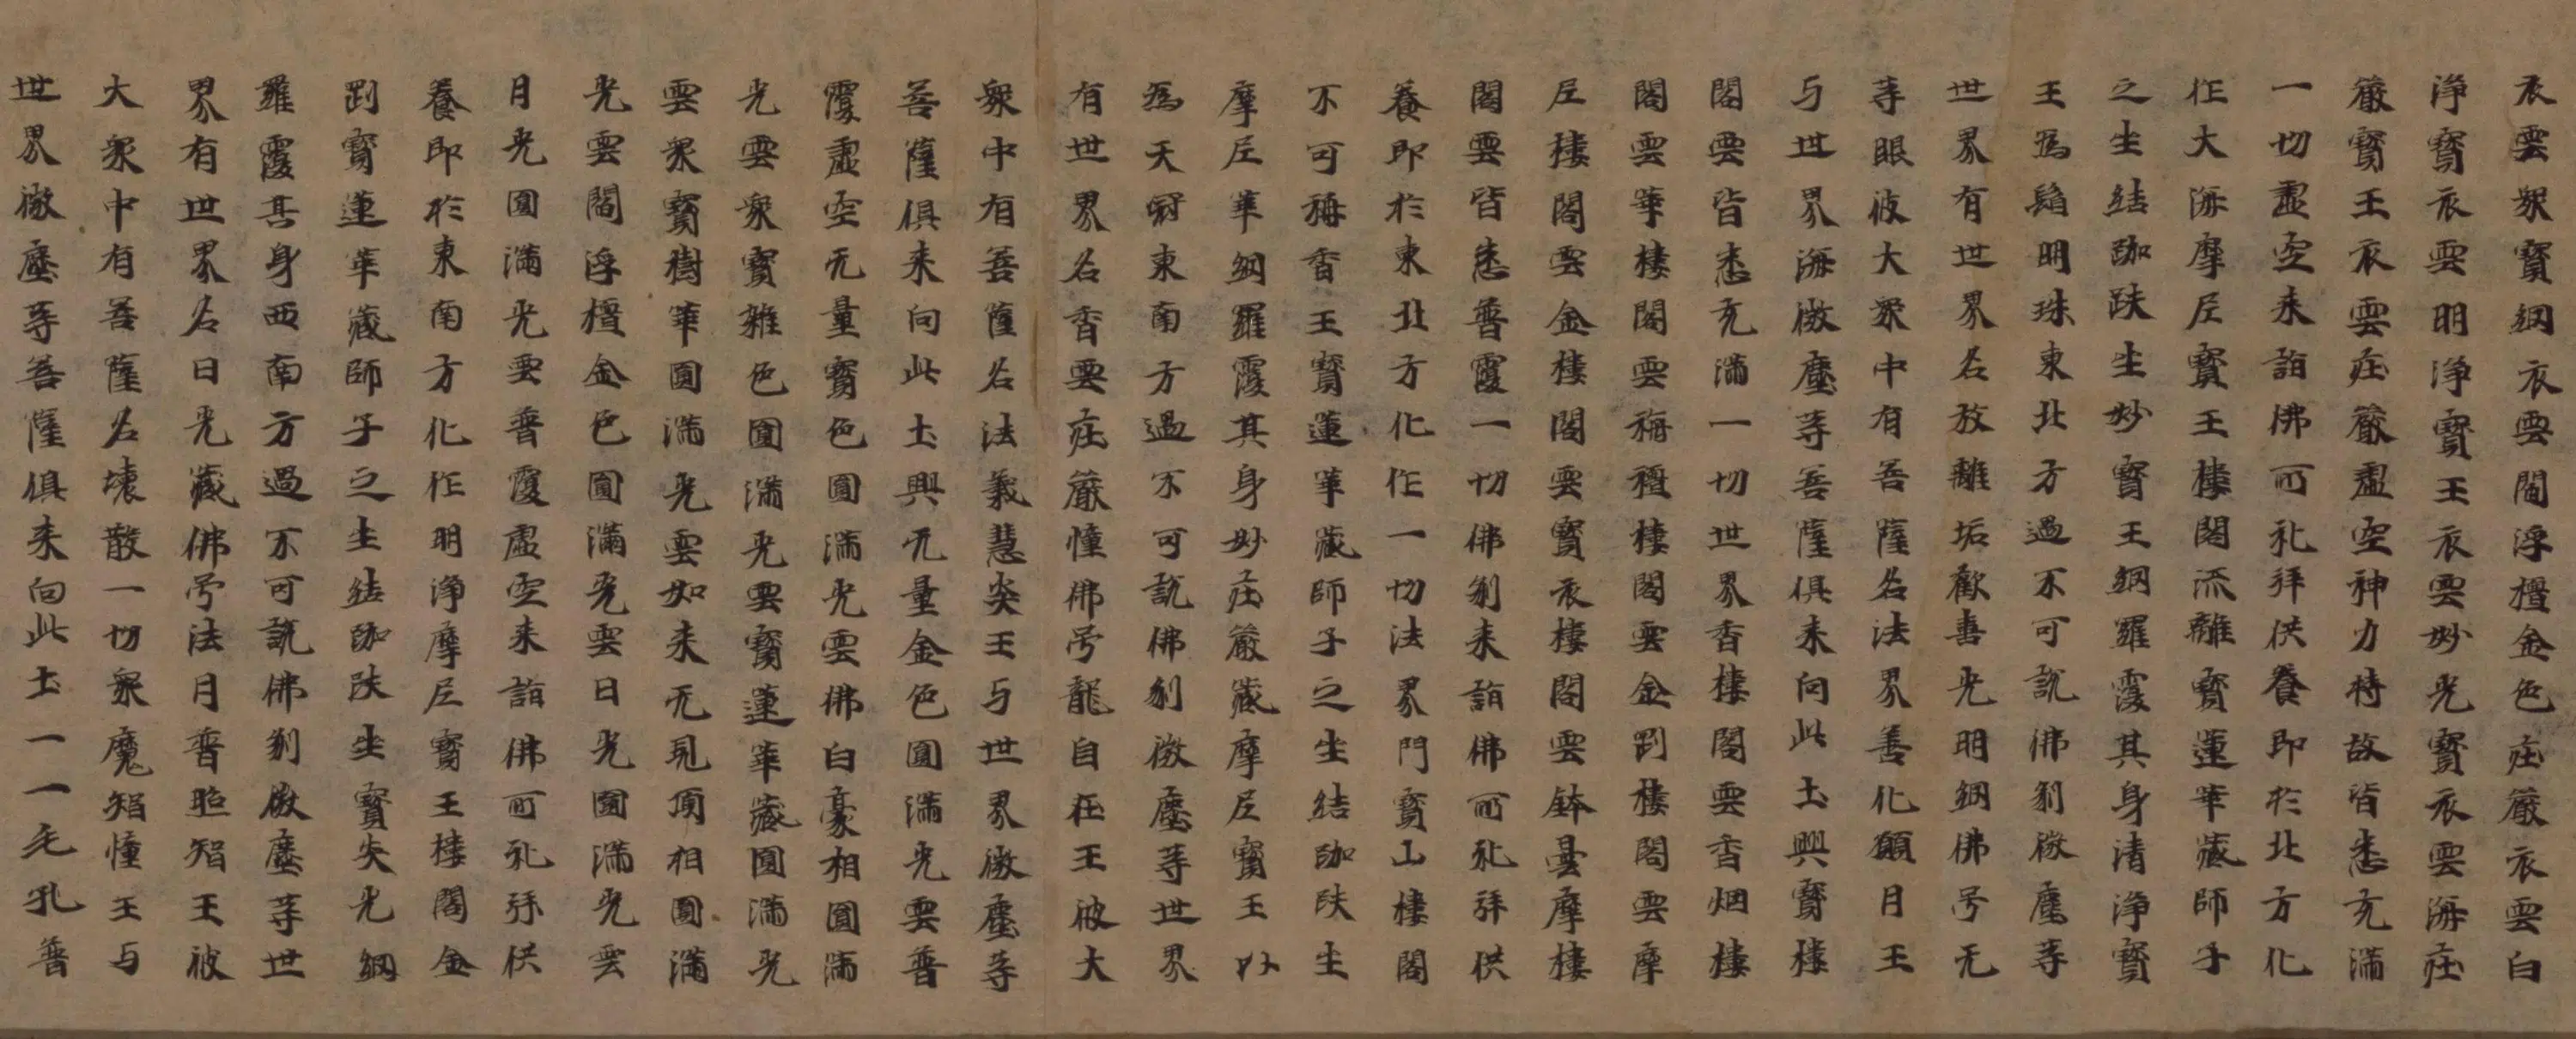 衣雲衆寶網衣雲閻浮檀金色庄嚴衣雲白
淨寶衣雲明淨寶王衣雲妙光寶衣雲海庄
嚴寶王衣衣雲庄嚴虛空神力持故皆悉充滿
一切虛空来詣佛所礼拜供養即於北方化
作大海摩尼寶王樓閣流離寶蓮華藏師子
之坐結跏趺坐妙寶王網羅覆其身清淨寶
王為髻明珠東北方過不可説佛刹微塵等
世界有世界名放離垢歡喜光明網佛号无
等眼彼大衆中有菩薩名法界善化願月王
与世界海微塵等菩薩俱来向此土興寶樓
閣雲皆悉充滿一切世界香樓閣雲香烟樓
閣雲華樓閣雲栴檀樓閣雲金剛樓閣雲摩
尼樓閣雲金樓閣雲寶衣樓閣雲鉢曇摩樓
閣雲皆悉普覆一切佛刹来詣佛所礼拜供
養即於東北方化作一切法界門寶山樓閣
不可稱香王寶蓮華藏師子之坐結跏趺坐
摩尼華網羅覆其身妙庄嚴藏摩尼寶王以
為天冠東南方過不可説佛刹微塵等世界
有世界名香雲庄嚴幢佛号龍自在王彼大
衆中有菩薩名法義慧炎王与世界微塵等
菩薩俱来向此土興无量金色圓滿光雲普
覆虛空无量寶色圓滿光雲佛白豪相圓滿
光雲衆寶雜色圓滿光雲寶蓮華藏圓滿光
雲衆寶樹華圓滿光雲如来无見頂相圓滿
光雲閻浮檀金色圓滿光雲日光圓滿光雲
月光圓滿光雲普覆虛空来詣佛所礼拜供
養即於東南方化作明淨摩尼寶王樓閣金
剛寶蓮華藏師子之坐結跏趺坐寶炎光網
羅覆其身西南方過不可説佛刹微塵等世
界有世界名日光藏佛号法月普照智王彼
大衆中有菩薩名壞散一切衆魔智幢王与
世界微塵等菩薩俱来向此土一一毛孔普